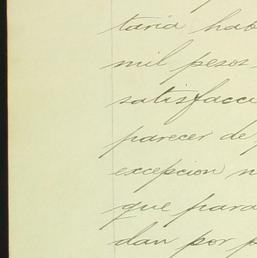 taria hab
mil pesos
satisfacci
parecer de
excepcion n
que para
dan por p